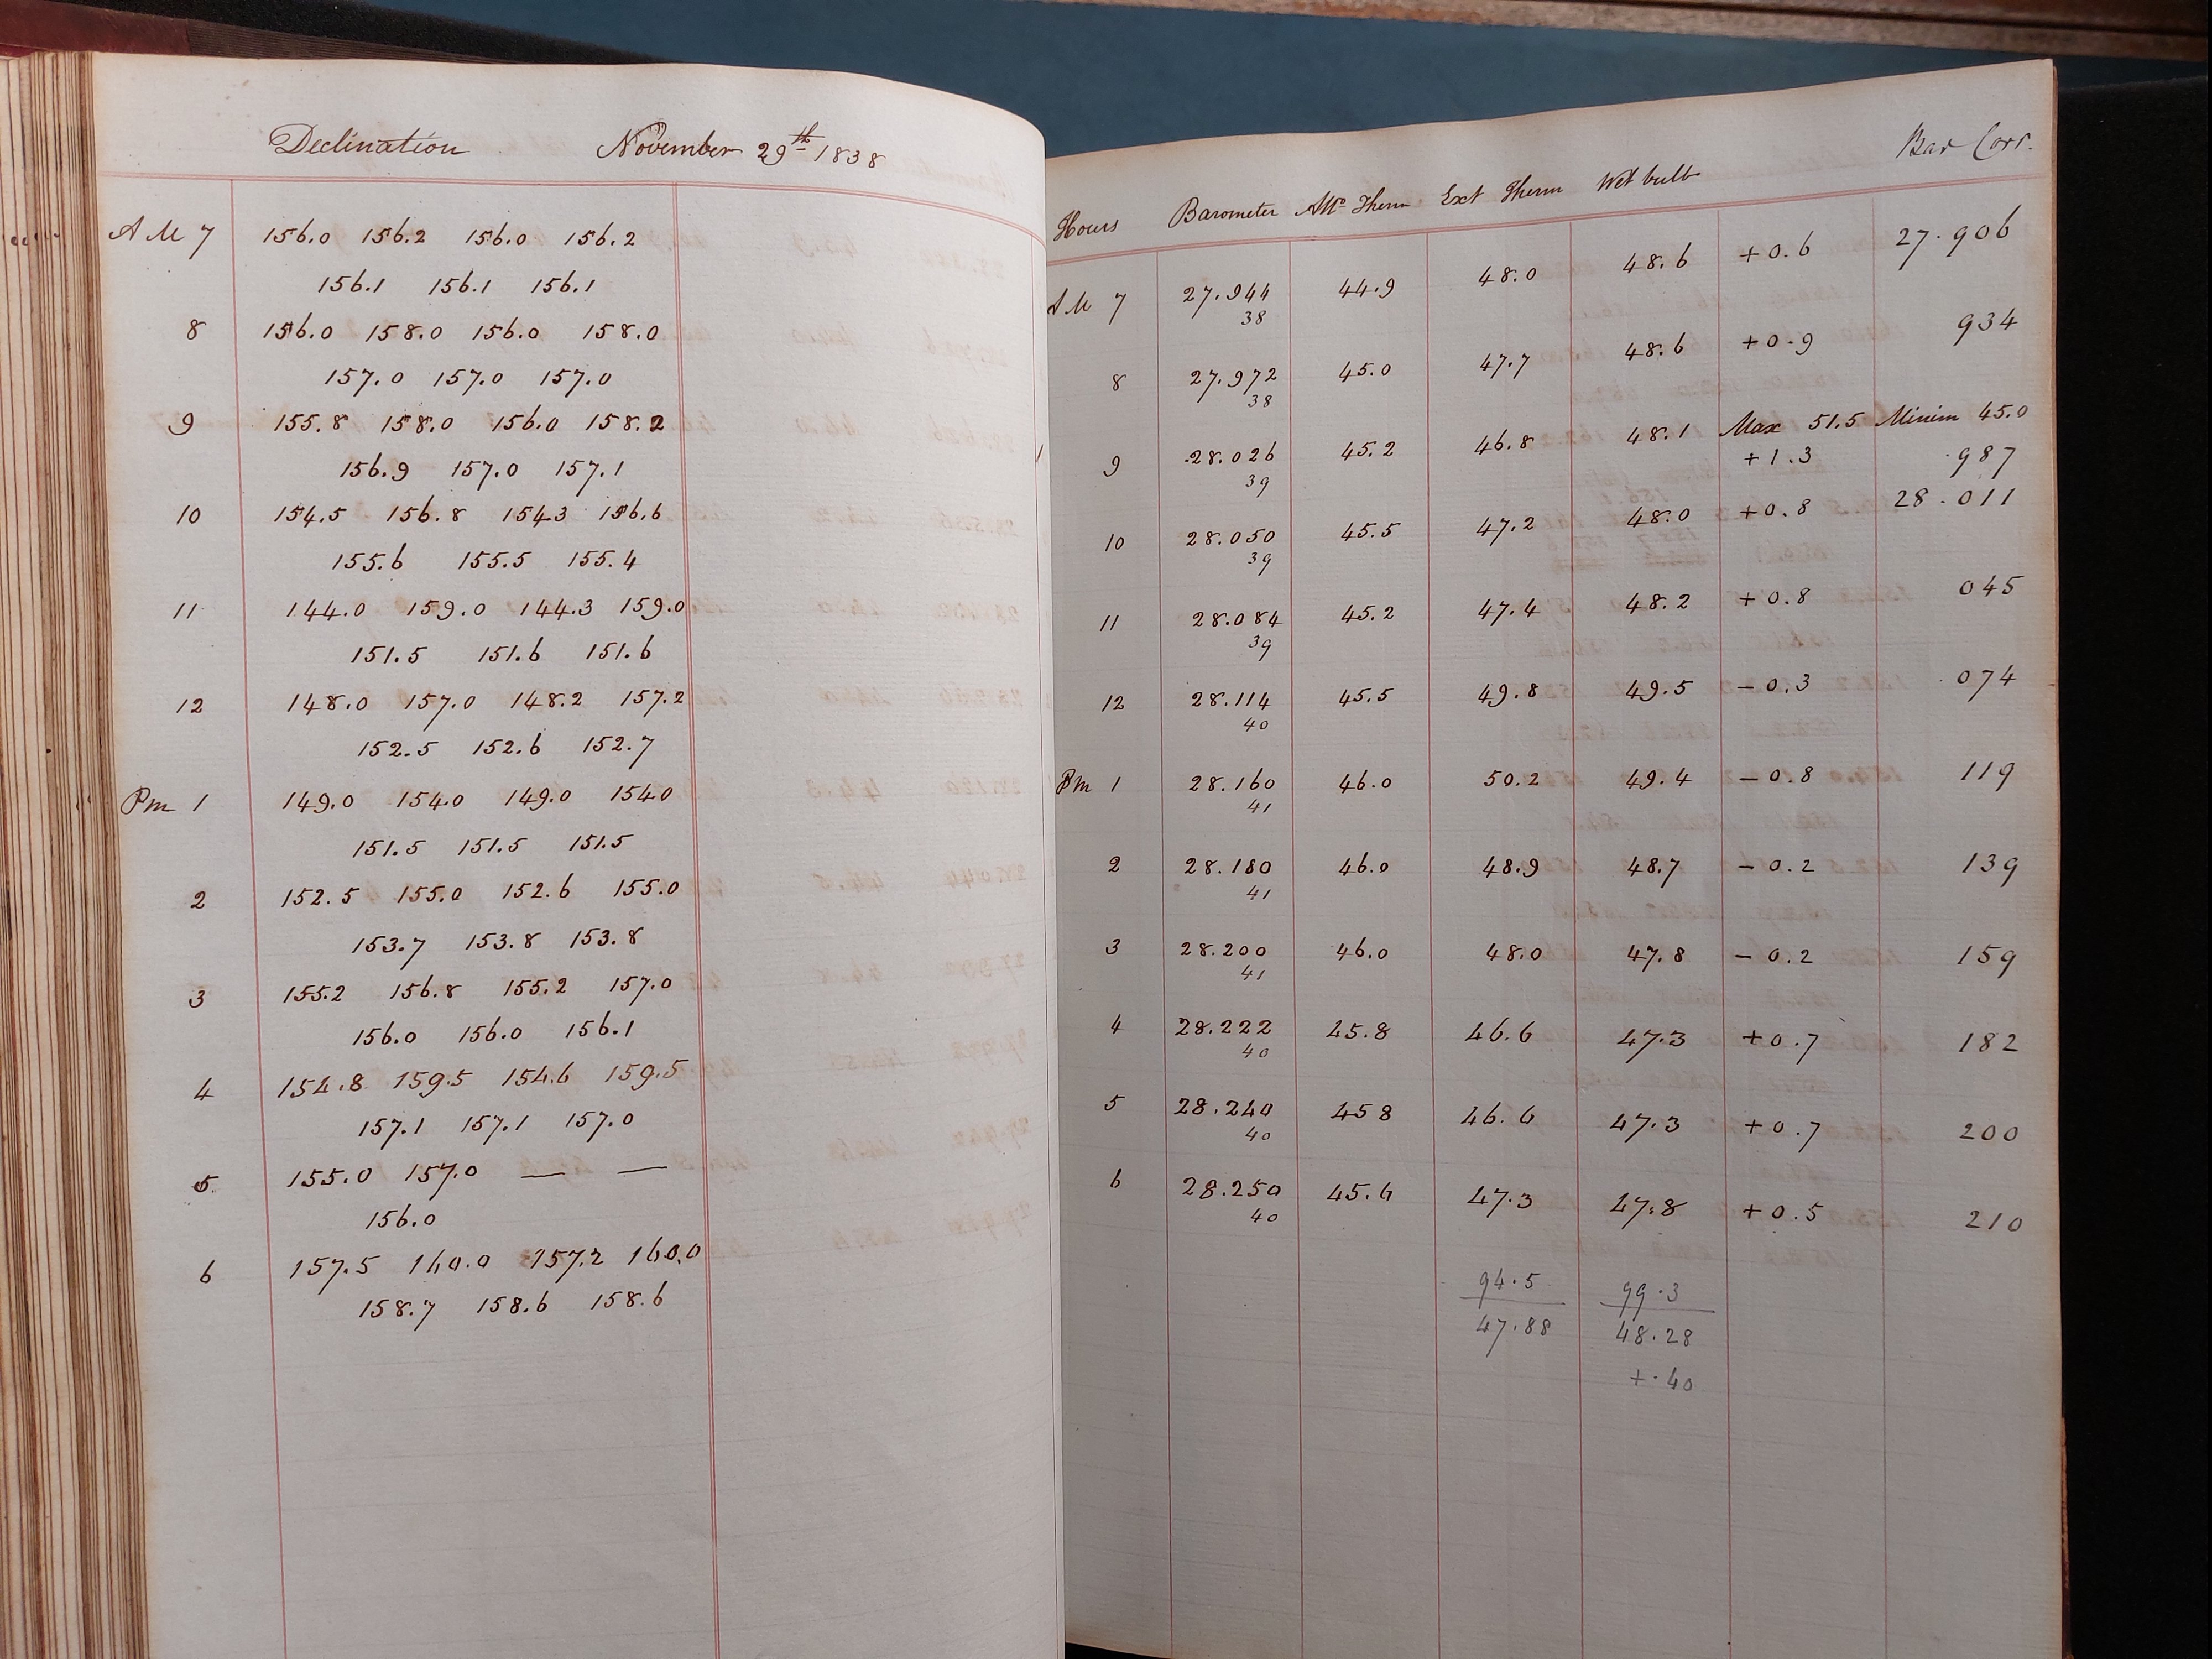 Declination November 29th 1838
AM 7 156.0 156.2 156.0 156.2
156.1 156.1 156.1
8 156.0 158.0 156.0 158.0
157.0 157.0 157.0
9 155.8 158.0 156.0 158.2
156.9 157.0 157.1
10 154.5 156.8 154.3 156.6
155.6 155.5 155.4
11 144.0 159.0 144.3 159.0
151.5 151.6 151.6
12 148.0 157.0 148.2 157.2
152.5 152.6 152.7
Pm 1 149.0 154.0 149.0 154.0
151.5 151.5 151.5
2 152.5 155.0 152.6 155.0
153.7 153.8 153.8
3 155.2 156.8 155.2 157.0
156.0 156.0 156.1
4 154.8 159.5 154.6 159.5
157.1 157.1 157.0
5 155.0 157.0 — —
156.0
6 157.5 160.0 157.2 160.0
158.7 158.6 158.6
Hours Barometer Attd Therm Ext Therm Wet bulb Bar Corr.
AM 7 27.944 44.9 48.0 48.6 +0.6 27.906
38
8 27.972 45.0 47.7 48.6 +0.9 934
38
Max 51.5 Minim 45.0
9 28.026 45.2 46.8 48.1 +1.3 .987
39
10 28.050 45.5 47.2 48.0 +0.8 28.011
39
11 28.084 45.2 47.4 48.2 +0.8 045
39
12 28.114 45.5 49.8 49.5 −0.3 074
40
Pm 1 28.160 46.0 50.2 49.4 −0.8 119
41
2 28.180 46.0 48.9 48.7 −0.2 139
41
3 28.200 46.0 48.0 47.8 −0.2 159
41
4 28.222 45.8 46.6 47.3 +0.7 182
40
5 28.240 45 8 46.6 47.3 +0.7 200
40
6 28.250 45.6 47.3 47.8 +0.5 210
40
94.5 99.3
47.88 48.28
+.40